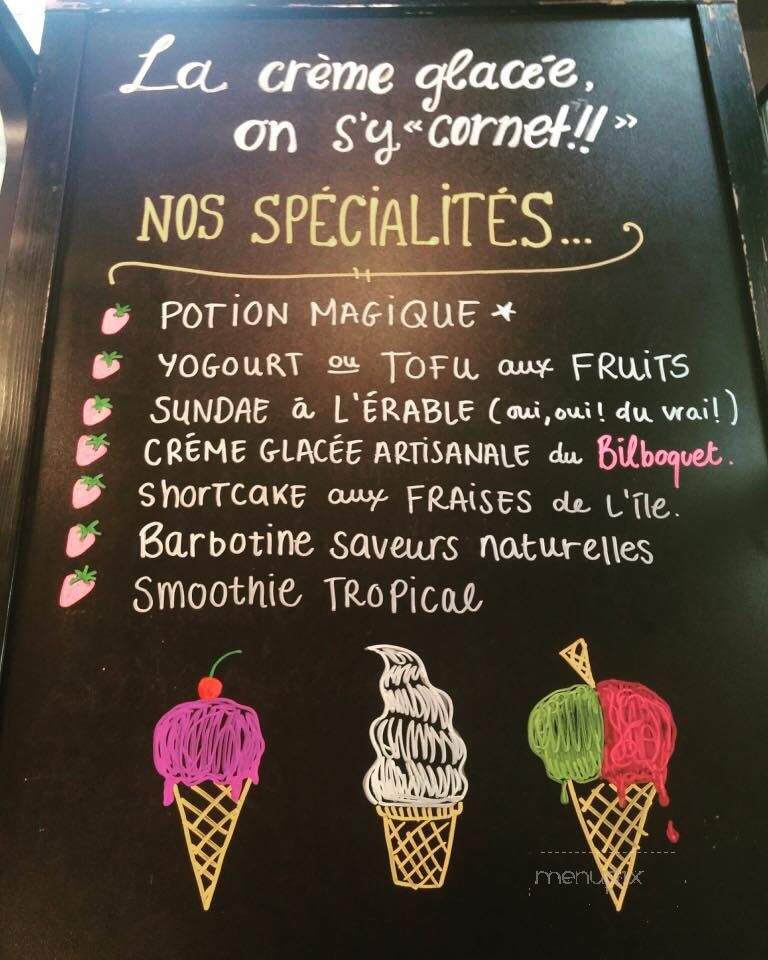 La crème glacée,
on s'y «cornet!!»
NOS SPÉCIALITÉS...
POTION MAGIQUE *
YOGOURT ou TOFU aux FRUITS
SUNDAE à L'ÉRABLE (oui, oui! du vrai!)
CRÉME GLACÉE ARTISANALE du Bilboquet.
ShorTCAKE aux FRAISES de L'île.
Barbotine saveurs naturelles
Smoothie TROPical
menupix